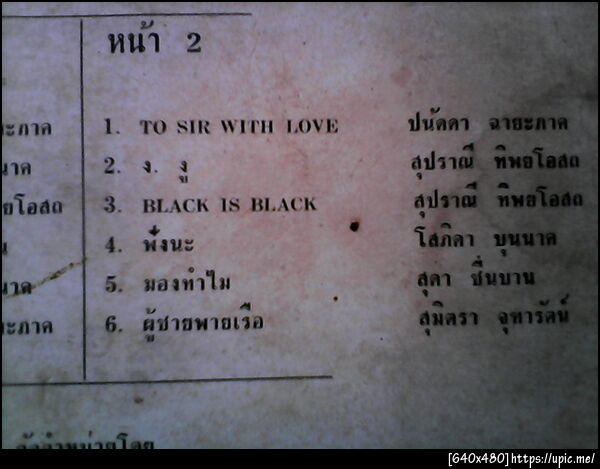 หน้า 2
ะภาค 1. TO SIR WITH LOVE ปนัดดา ฉายะภาค
นาค 2. ง. งู สุปราณี ทิพยโอสถ
ยโอสถ 3. BLACK IS BLACK สุปราณี ทิพยโอสถ
4. พังนะ โสภิดา บุนนาค
นาค 5. มองทำไม สุดา ชื่นบาน
ะภาค 6. ผู้ชายพายเรือ สุมิตรา จุฑารัตน์
จัดจำหน่ายโดย
[640x480]https://upic.me/